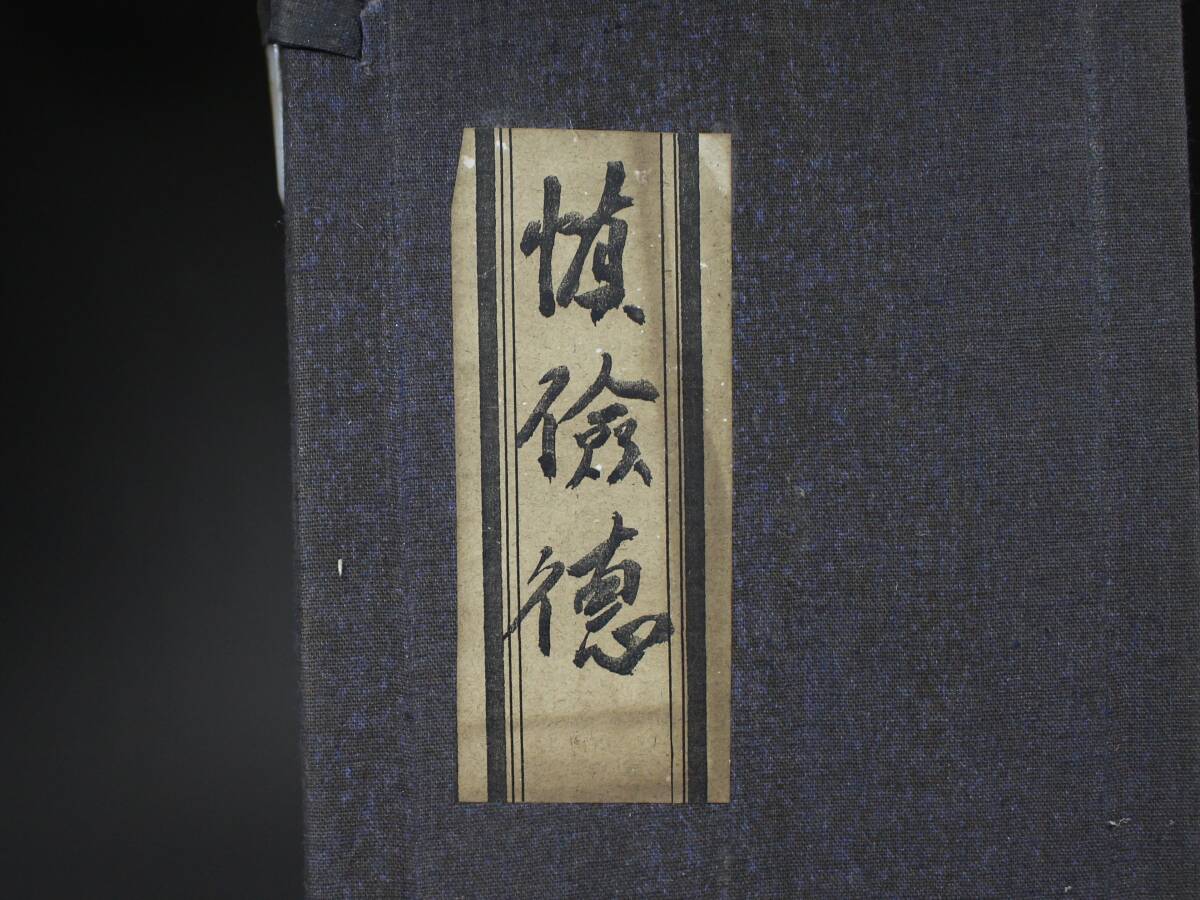 慎儉德